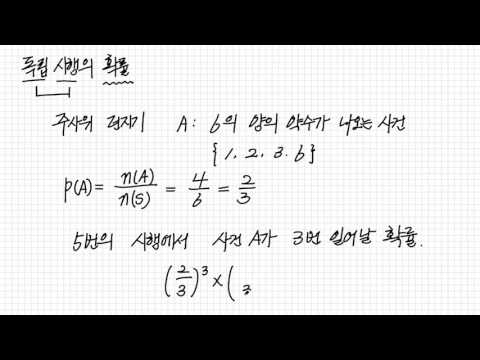 독립 시행의 확률
주사위 던지기 A: 6의 양의 약수가 나오는 사건
{1, 2, 3, 6}
P(A) = n(A)/n(S) = 4/6 = 2/3
5번의 시행에서 사건 A가 3번 일어날 확률.
(2/3)³ × ( 3